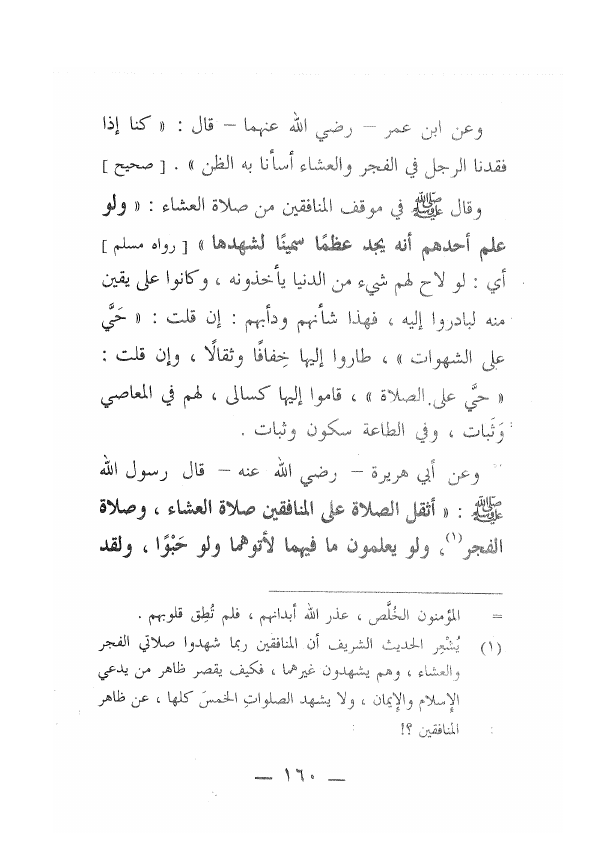 وعن ابن عمر – رضي الله عنهما – قال : « كنا إذا
فقدنا الرجل في الفجر والعشاء أسأنا به الظن » . [ صحيح ]
وقال ﷺ في موقف المنافقين من صلاة العشاء : « ولو
علم أحدهم أنه يجد عظمًا سمينًا لشهدها » [ رواه مسلم ]
أي : لو لاح لهم شيء من الدنيا يأخذونه ، وكانوا على يقين
منه لبادروا إليه ، فهذا شأنهم ودأبهم : إن قلت : « حَيَّ
على الشهوات » ، طاروا إليها خِفافًا وثقالًا ، وإن قلت :
« حيَّ على الصلاة » ، قاموا إليها كسالى ، لهم في المعاصي
وَثَبات ، وفي الطاعة سكون وثبات .
وعن أبي هريرة – رضي الله عنه – قال رسول الله
ﷺ : « أثقل الصلاة على المنافقين صلاة العشاء ، وصلاة
الفجر(١)، ولو يعلمون ما فيهما لأتوهما ولو حَبْوًا ، ولقد
= المؤمنون الخُلَّص ، عذر الله أبدانهم ، فلم تُطِق قلوبهم .
(١) يُشْعِر الحديث الشريف أن المنافقين ربما شهدوا صلاتي الفجر
والعشاء ، وهم يشهدون غيرهما ، فكيف يقصر ظاهر من يدعي
الإسلام والإيمان ، ولا يشهد الصلواتِ الخمسَ كلها ، عن ظاهر
المنافقين ؟!
– ١٦٠ –